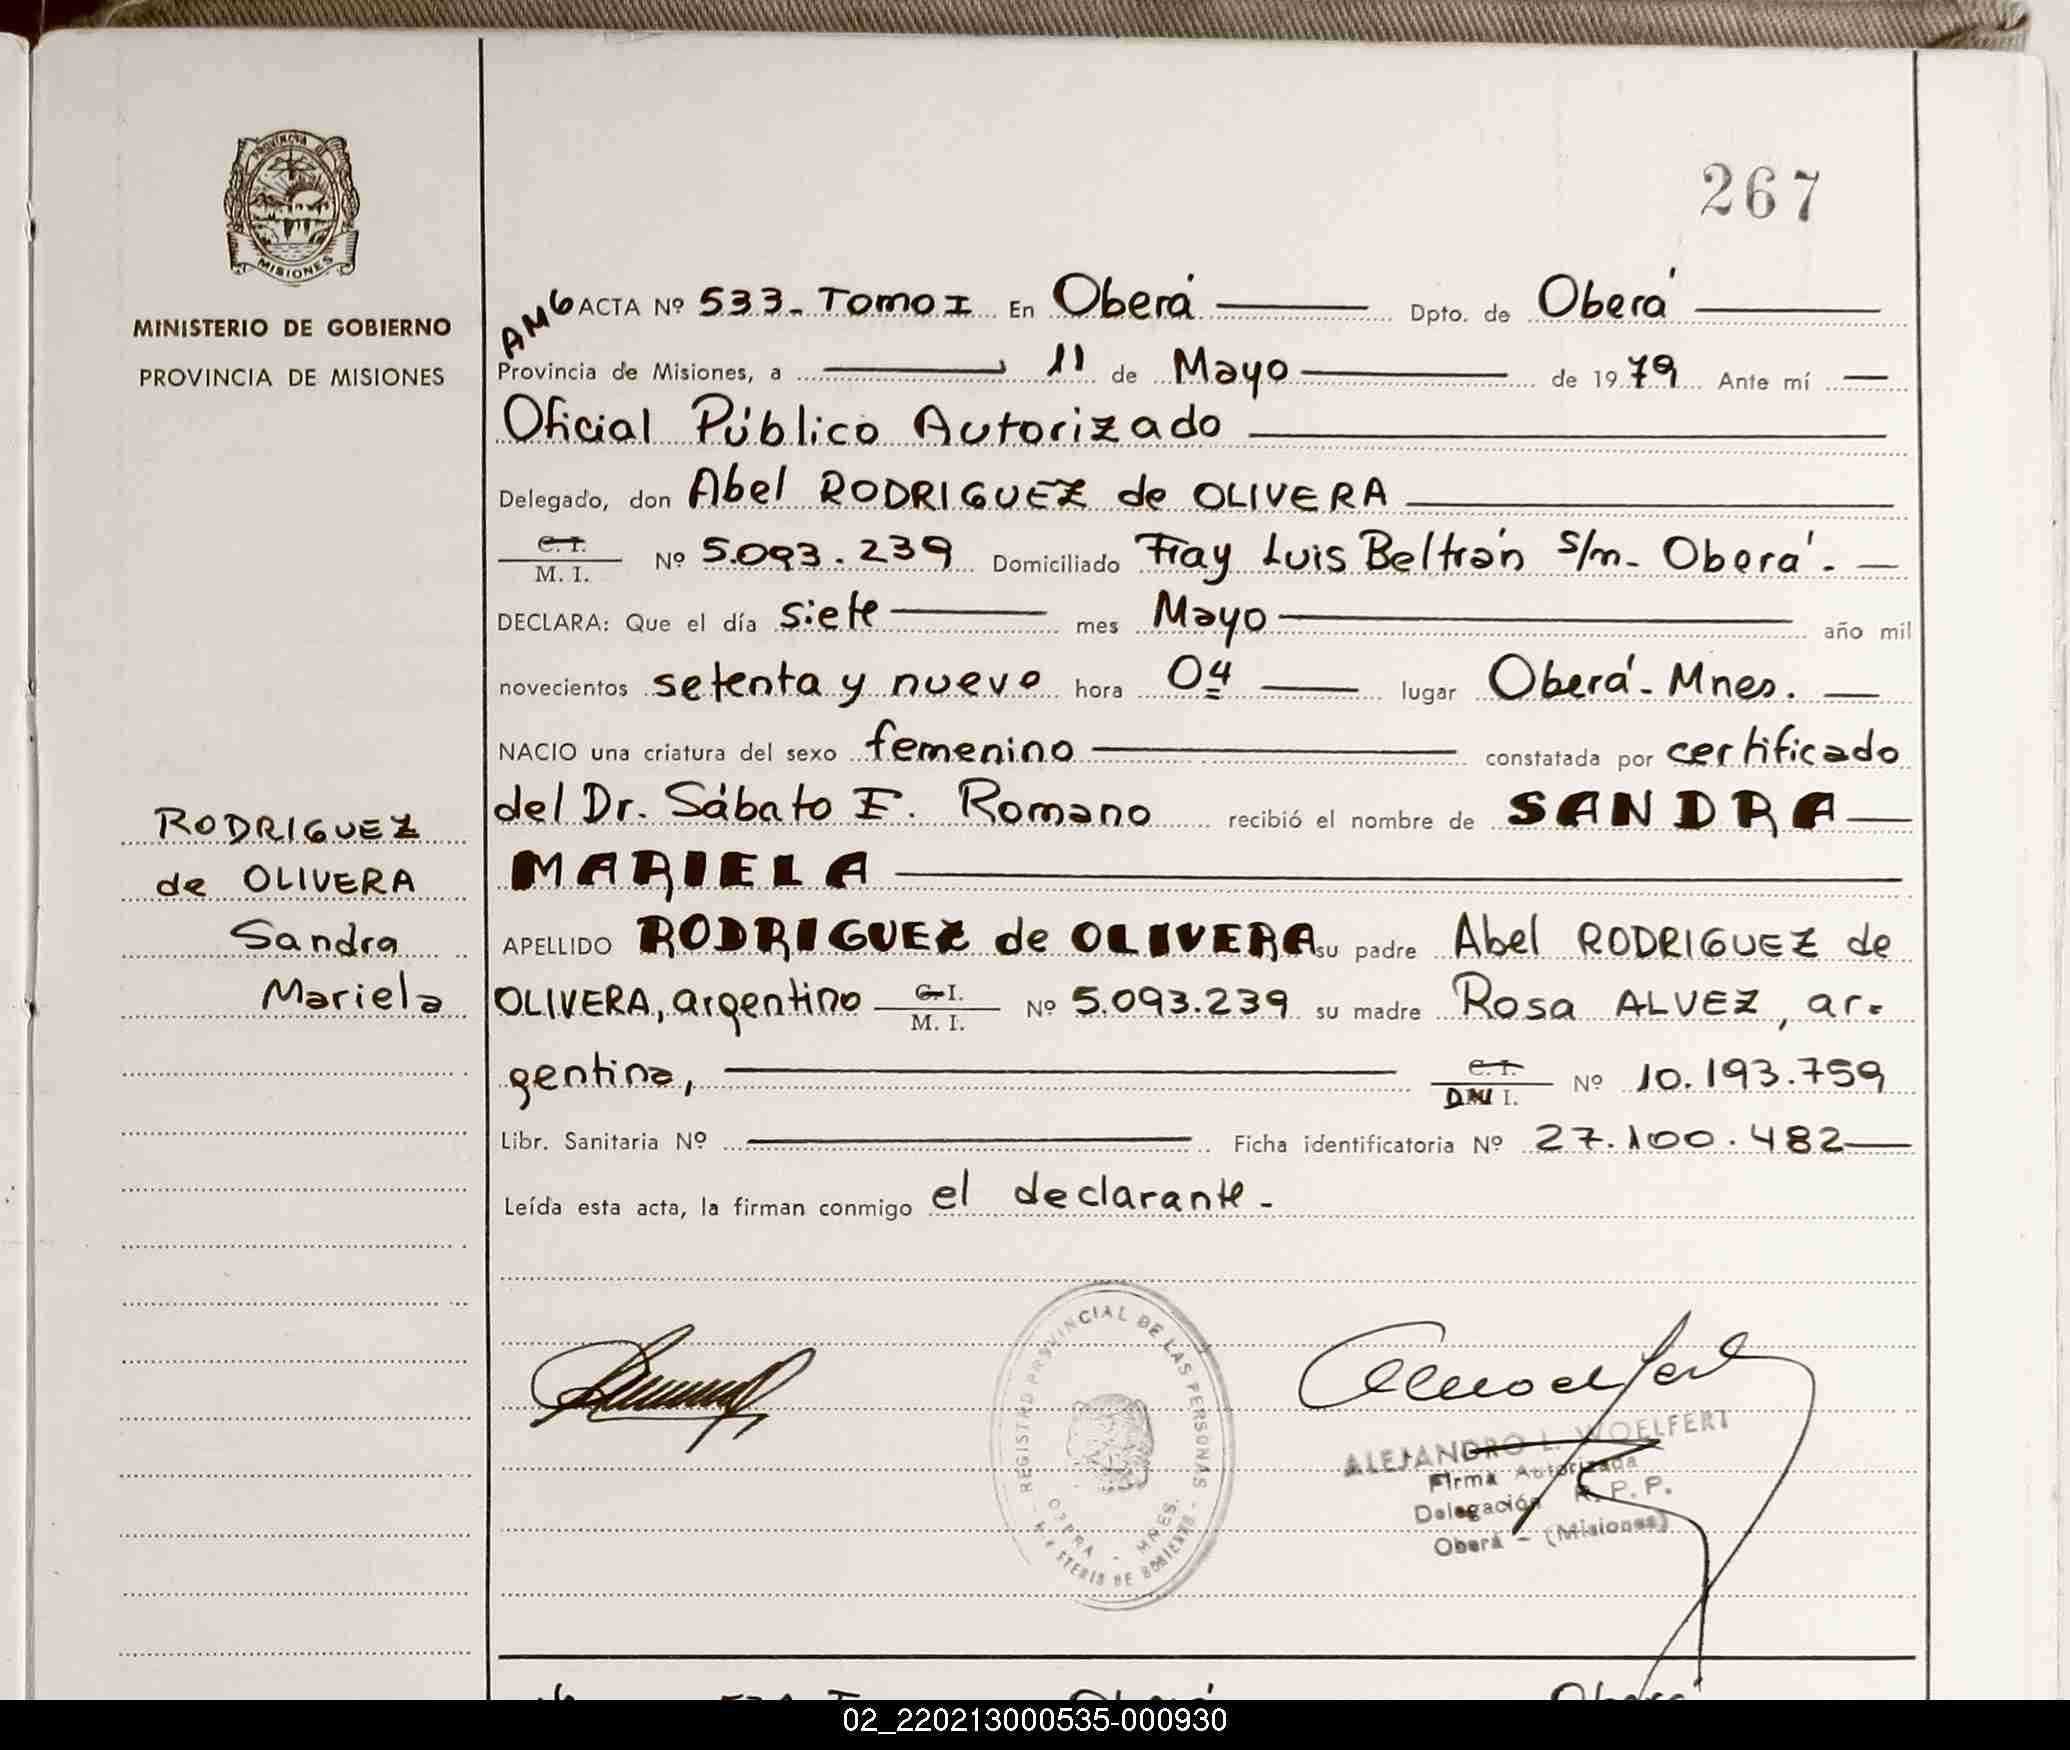 PROVINCIA DE
MISIONES
MINISTERIO DE GOBIERNO
PROVINCIA DE MISIONES
267
ACTA Nº 533-Tomo I En Oberá Dpto. de Oberá
Provincia de Misiones, a 11 de Mayo de 1979 Ante mí
Oficial Público Autorizado
Delegado, don Abel RODRIGUEZ de OLIVERA
C. I.
M. I. Nº 5.093.239 Domiciliado Fray Luis Beltrán s/n- Oberá.
DECLARA: Que el día siete mes Mayo año mil
novecientos setenta y nueve hora 04 lugar Oberá- Mnes.
NACIO una criatura del sexo femenino constatada por certificado
del Dr. Sábato E. Romano recibió el nombre de SANDRA
MARIELA
APELLIDO RODRIGUEZ de OLIVERA su padre Abel RODRIGUEZ de
OLIVERA, argentino C. I.
M. I. Nº 5.093.239 su madre Rosa ALVEZ, ar-
gentina, C. I.
DNI. Nº 10.193.759
Libr. Sanitaria Nº Ficha identificatoria Nº 27.100.482
Leída esta acta, la firman conmigo el declarante-
RODRIGUEZ
de OLIVERA
Sandra
Mariela
REGISTRO PROVINCIAL DE LAS PERSONAS
OBERA - MNES.
MINISTERIO DE GOBIERNO
ALEJANDRO L. WOELFERT
Firma Autorizada
Delegación R. P. P.
Oberá - (Misiones)
02_220213000535-000930